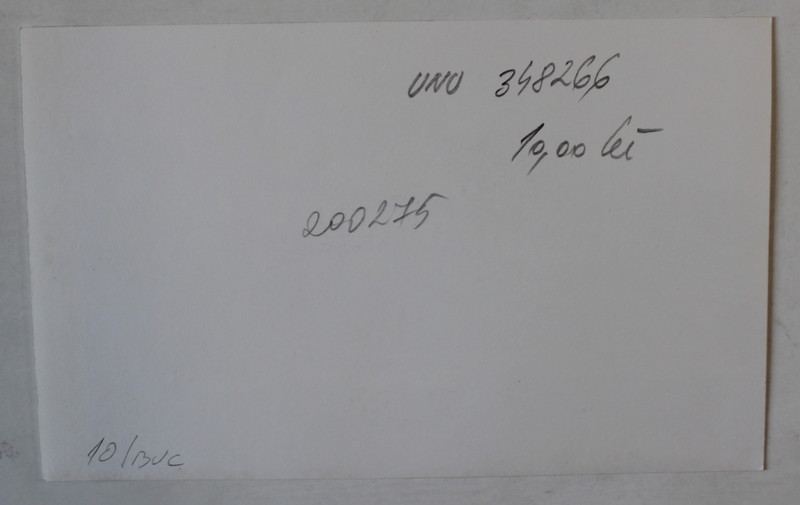 UNU 348266
10,00 lei
200275
10/BUC